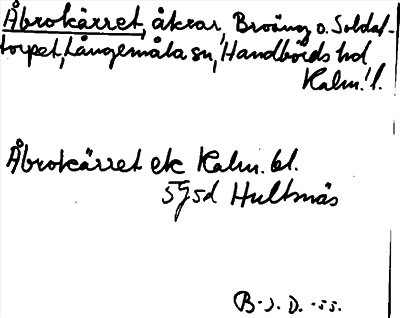 Åbrokärret, åkrar, Broäng o. Soldat-
torpet, Långemåla sn, Handbörds hd
Kalm. l.
Åbrokärret ek Kalm. bl.
5g5d Hultsnäs
B. J. D. -55.